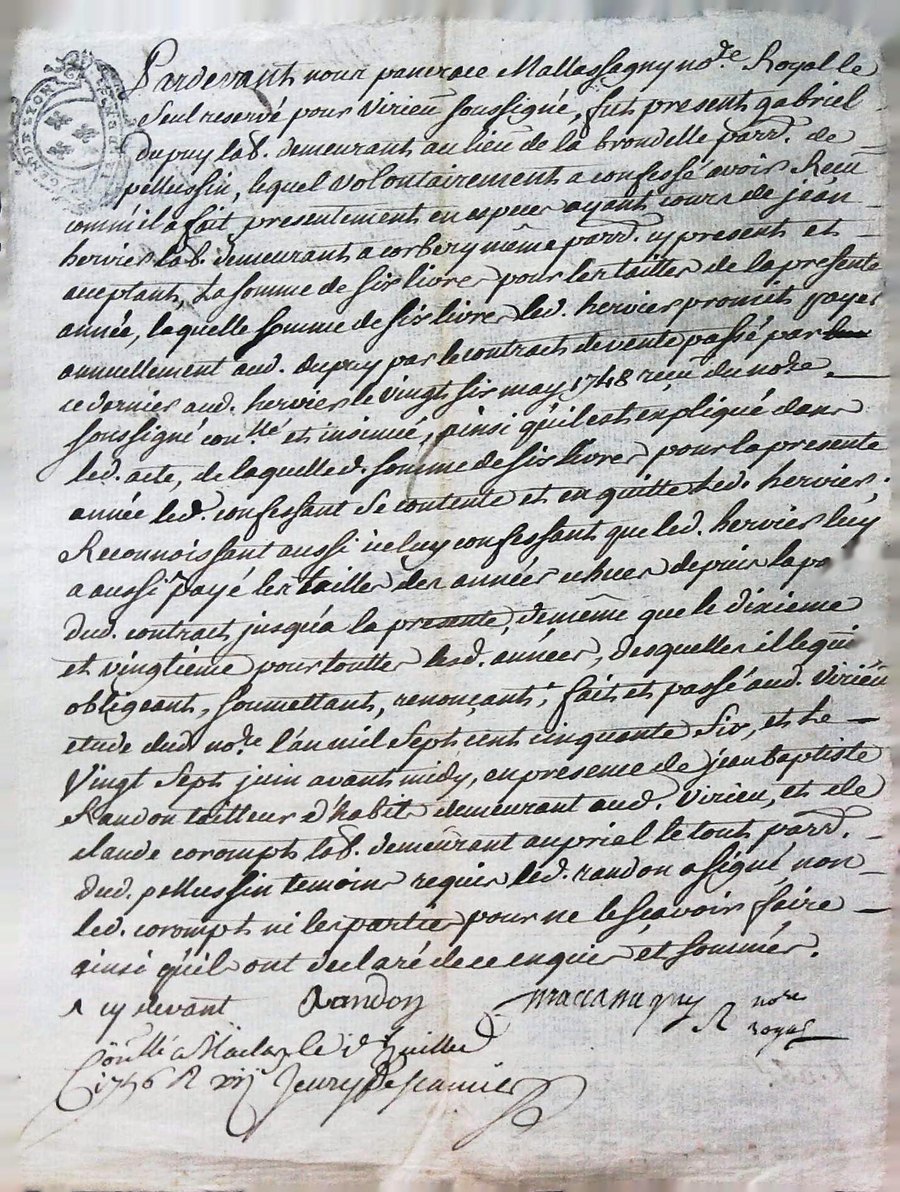 Pardevant nous pancrace Mallassagny no.re Royal le
Seul reservé pour Virieu soussigné, fut present gabriel
dupuy lab. demeurant au lieu de la brondelle parr. de
pellussin, lequel volontairement a confessé avoir Recu
comm'il a fait presentement en especes ayant cours de jean
hervier lab. demeurant a corbery même parr. cy present et
acceptant, La somme de six livres pour les tailles de la presente
année, laquelle somme de six livres led. hervier promit payer
annuellement aud. dupuy par le contract de vente passé par
ce dernier aud. hervier le vingt six may 1748 reçu du no.re
soussigné con.llé et insinué, ainsi qu'il est expliqué dans
led. acte, de laquelle d. somme de six livres pour la presente
année led. confessant se contente et en quitte led. hervier.
Reconnoissant aussi iceluy confessant que led. hervier luy
a aussi ^ payé les tailles des années echues depuis la
dud. contract jusqu'a la presente, de même que le dixieme
et vingtième pour touttes lesd. années, desquelles il le qui
obligeant, soumettant, renonçant, fait et passé aud. Virieu
etude dud. no.re l'an mil sept cent cinquante six, et le
Vingt sept juin avant midy, en presence de jean baptiste
Randon tailleur d'habits demeurant aud. Virieu, et de
claude corompt lab. demeurant au priel le tout parr.
dud. pellussin temoins requis led. randon a signé non
led. corompt ni les parties pour ne le sçavoir faire
ainsi qu'ils ont declaré de ce enquis et sommés.
^ cy devant Randon Mallassagny no.re
R royal
Con.llé a Maclas le juillet
1756 R